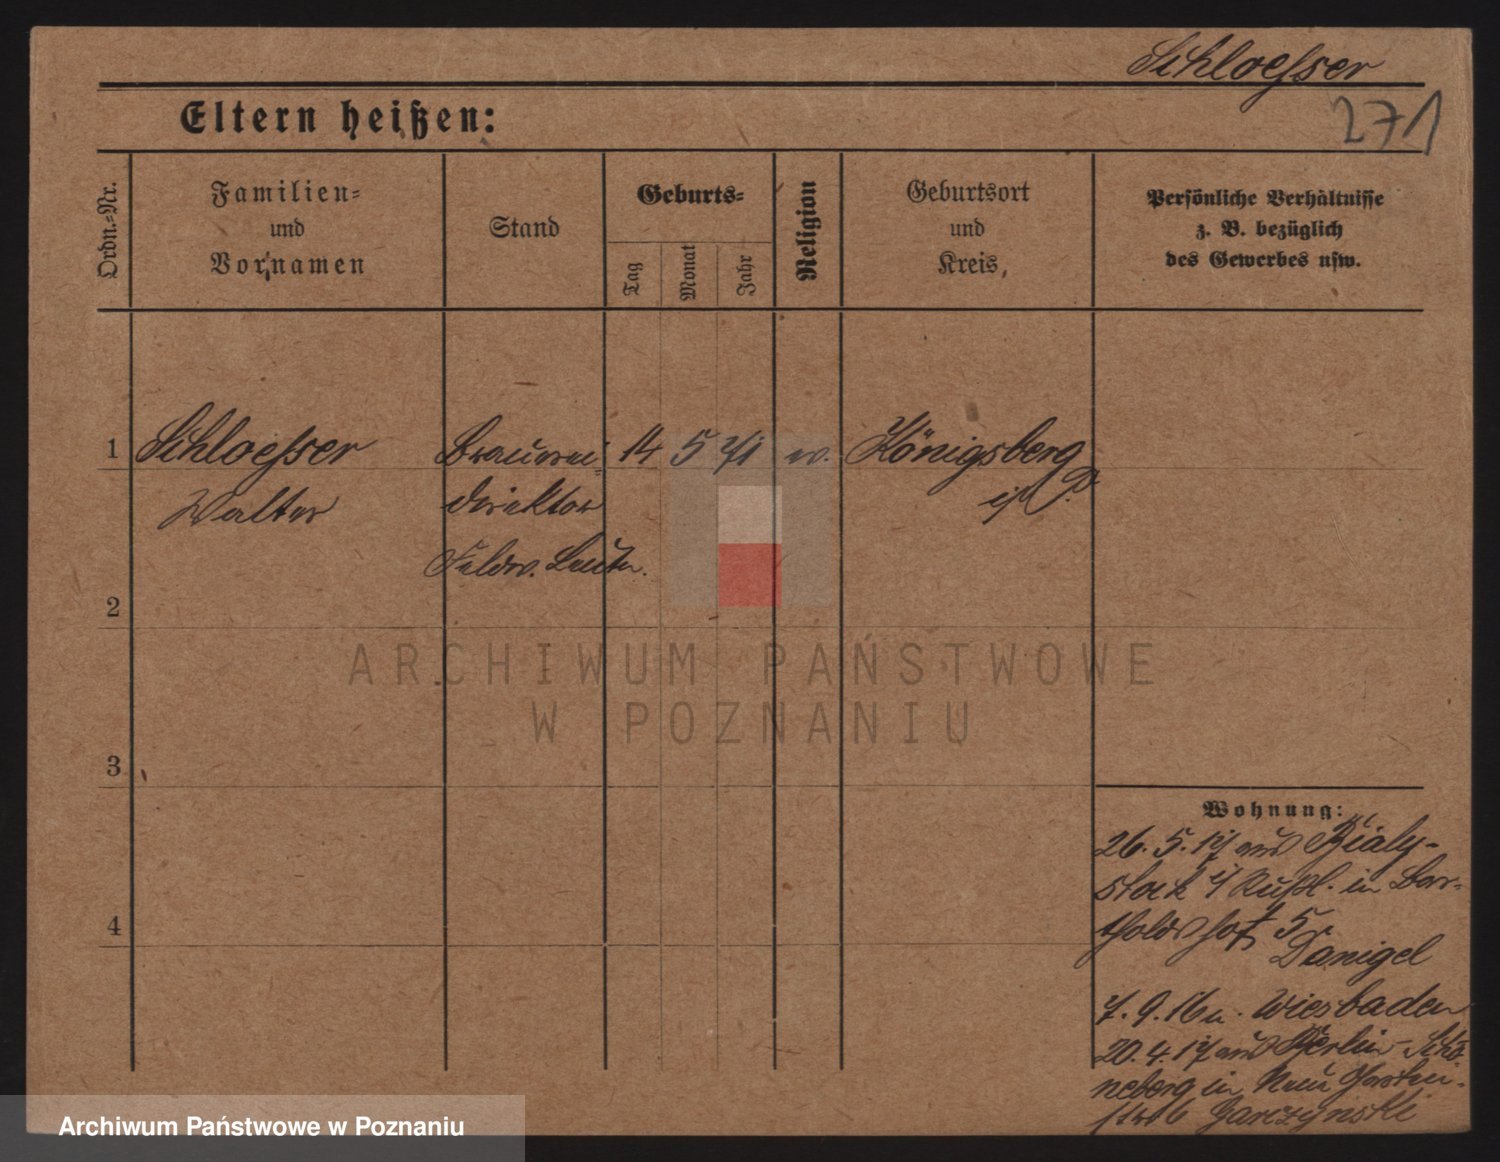 Schloesser
271
Eltern heißen:
Ordn.-Nr.
Familien-
und
Vornamen
Stand
Geburts-
Tag
Monat
Jahr
Religion
Geburtsort
und
Kreis,
Persönliche Verhältnisse
z. B. bezüglich
des Gewerbes usw.
1 Schloesser Brauerei- 14 5 71 ev. Königsberg
Walter direktor i/P.
Feldw. Leutn.
2
ARCHIWUM PAŃSTWOWE
W POZNANIU
3
Wohnung:
26. 5. 17 aus Bialy-
stock i/ Rußl. in Bar-
tholdshof 5
4
Danigel
7. 9. 16 n. Wiesbaden
20. 4. 17 aus Berlin-Schö-
neberg in Neue Garten-
str 6 Garczynski
Archiwum Państwowe w Poznaniu